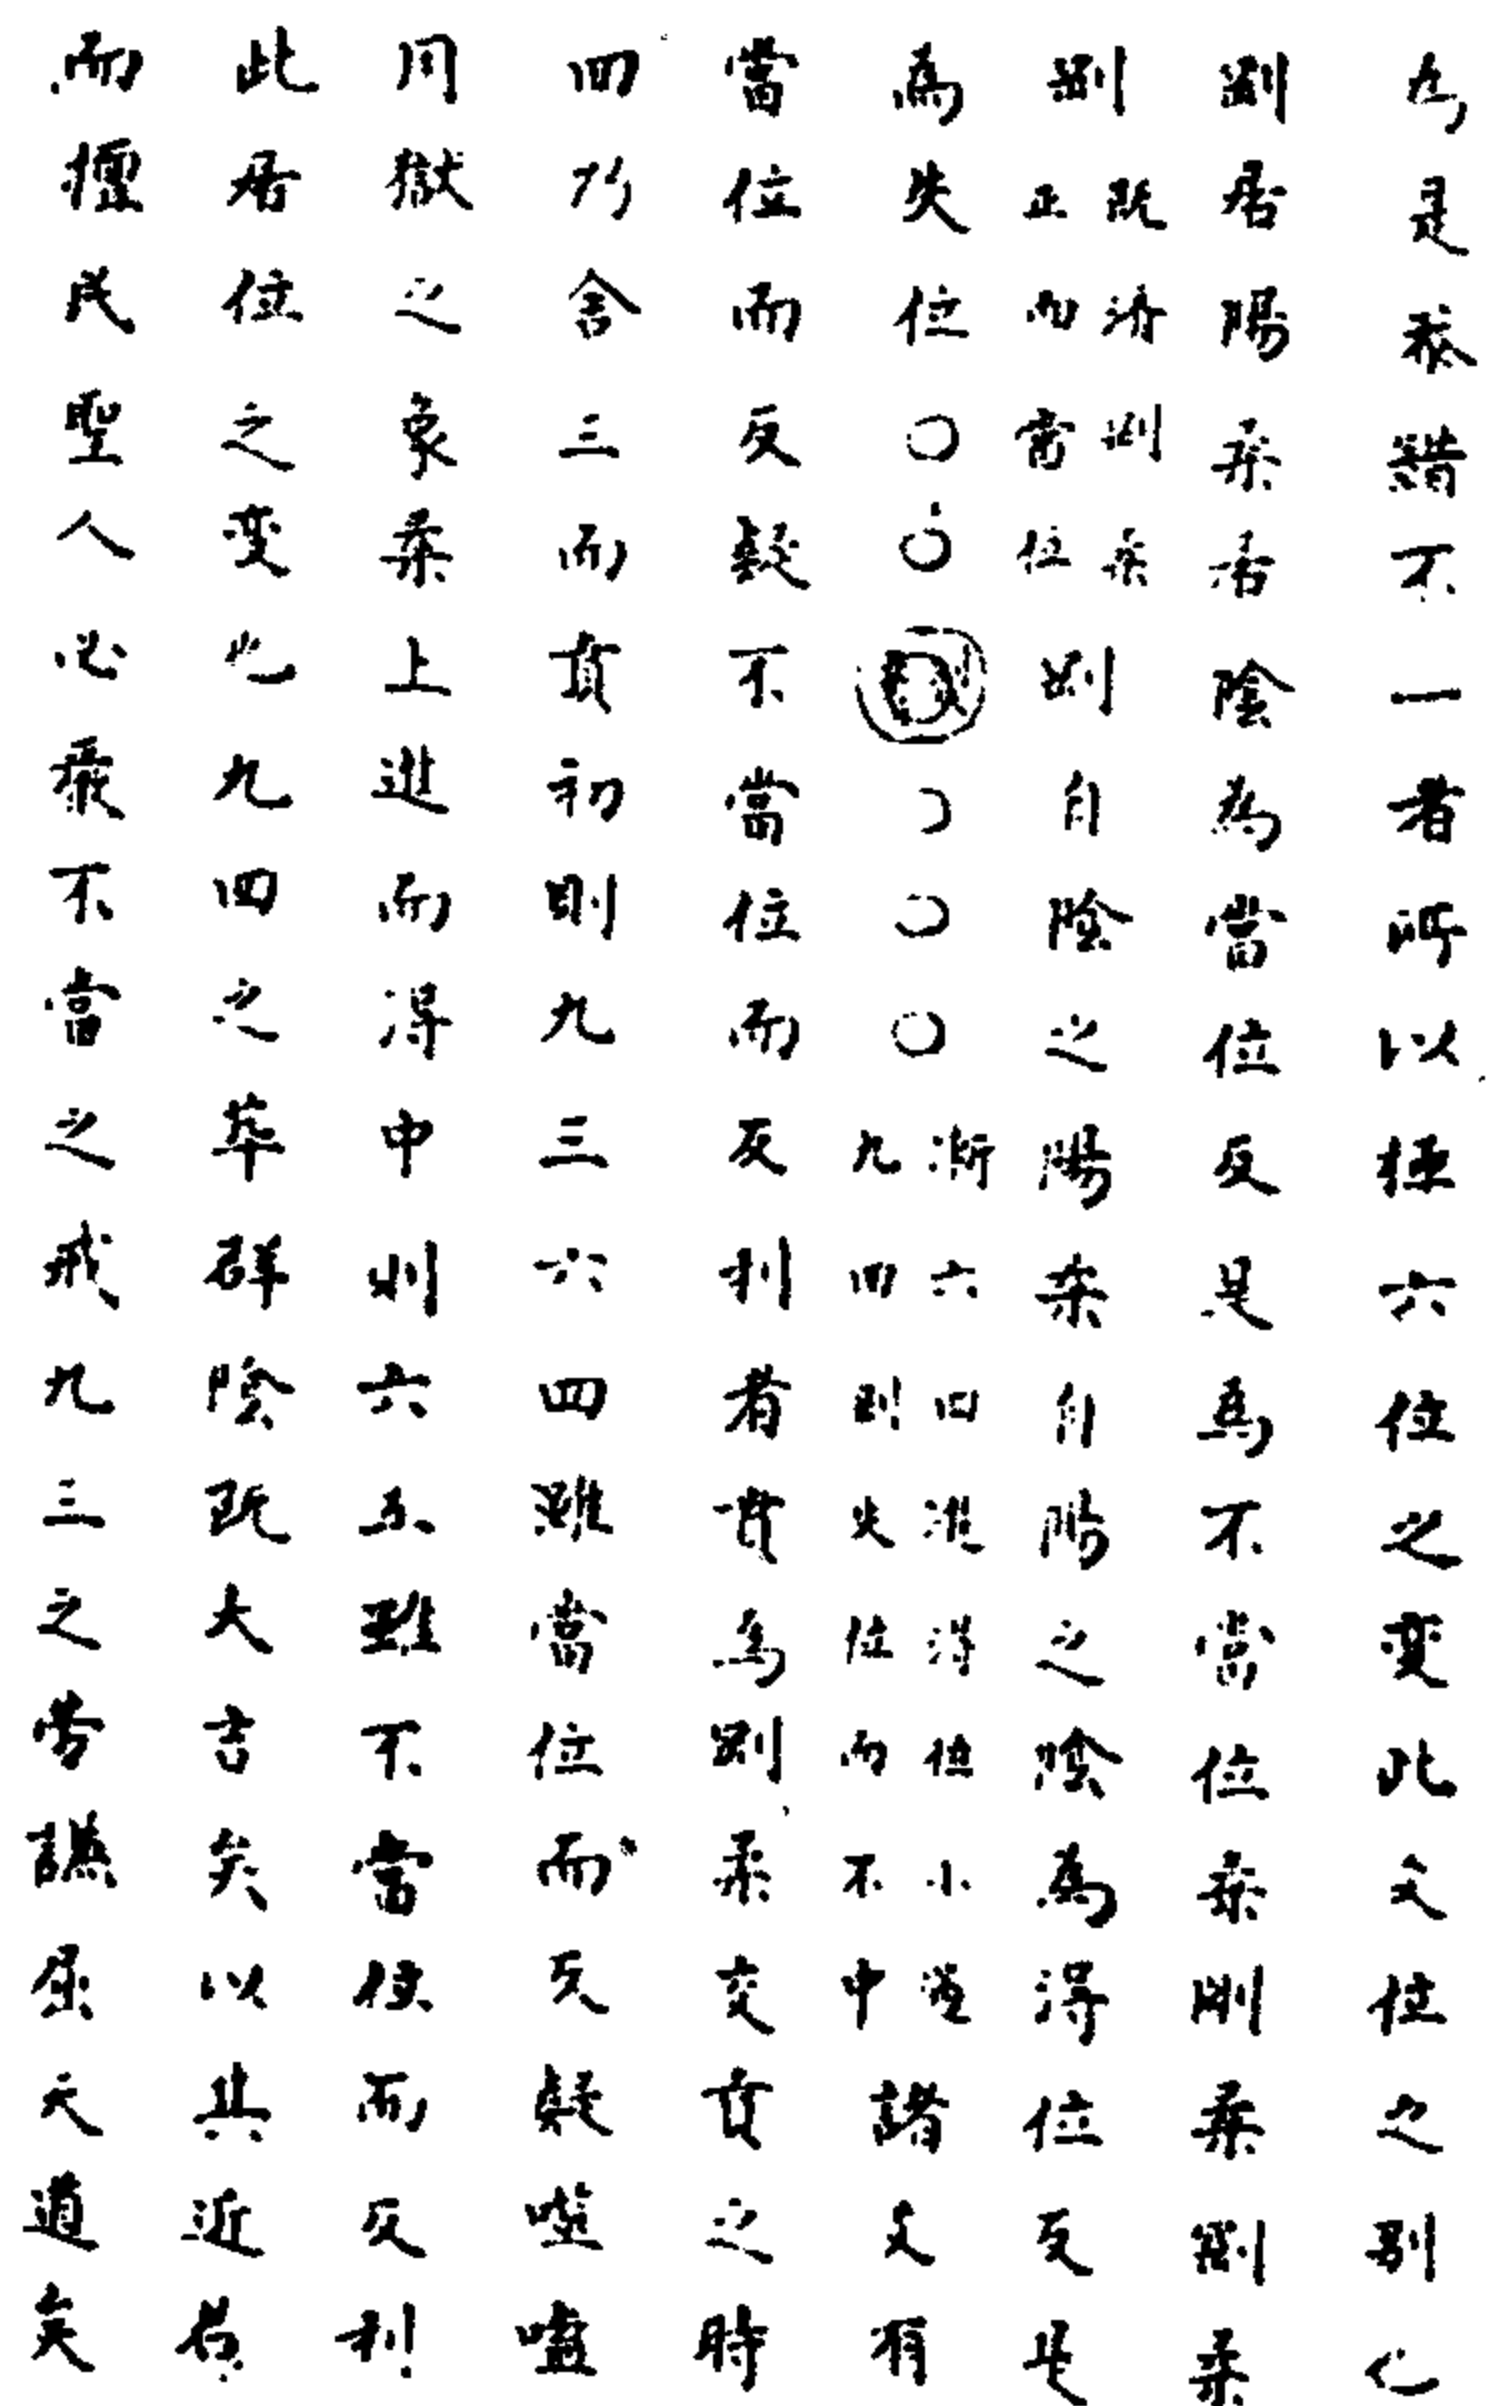 為是參錯不一者所以極六位之变此爻位之別也
剛居陽柔居陰為當位反是為不當位柔剛柔剛柔
剛既濟剛柔正而當位則自陰之陽柔自陽之陰為得位反是
為失位○○◎○○○漸六四進得位小過九四則失位而不中諸爻有
當位而反疑不當位而反利者賁為剛柔交賁之時
四乃舍三而賁初則九三六四雖當位而反疑噬嗑
用獄之象柔上進而得中則六五雖不當位而反利
此居位之变也九四之萃群陰既大吉矣以其近君
而擅民聖人必嚴不當之戒九三之勞謙屈天道矣